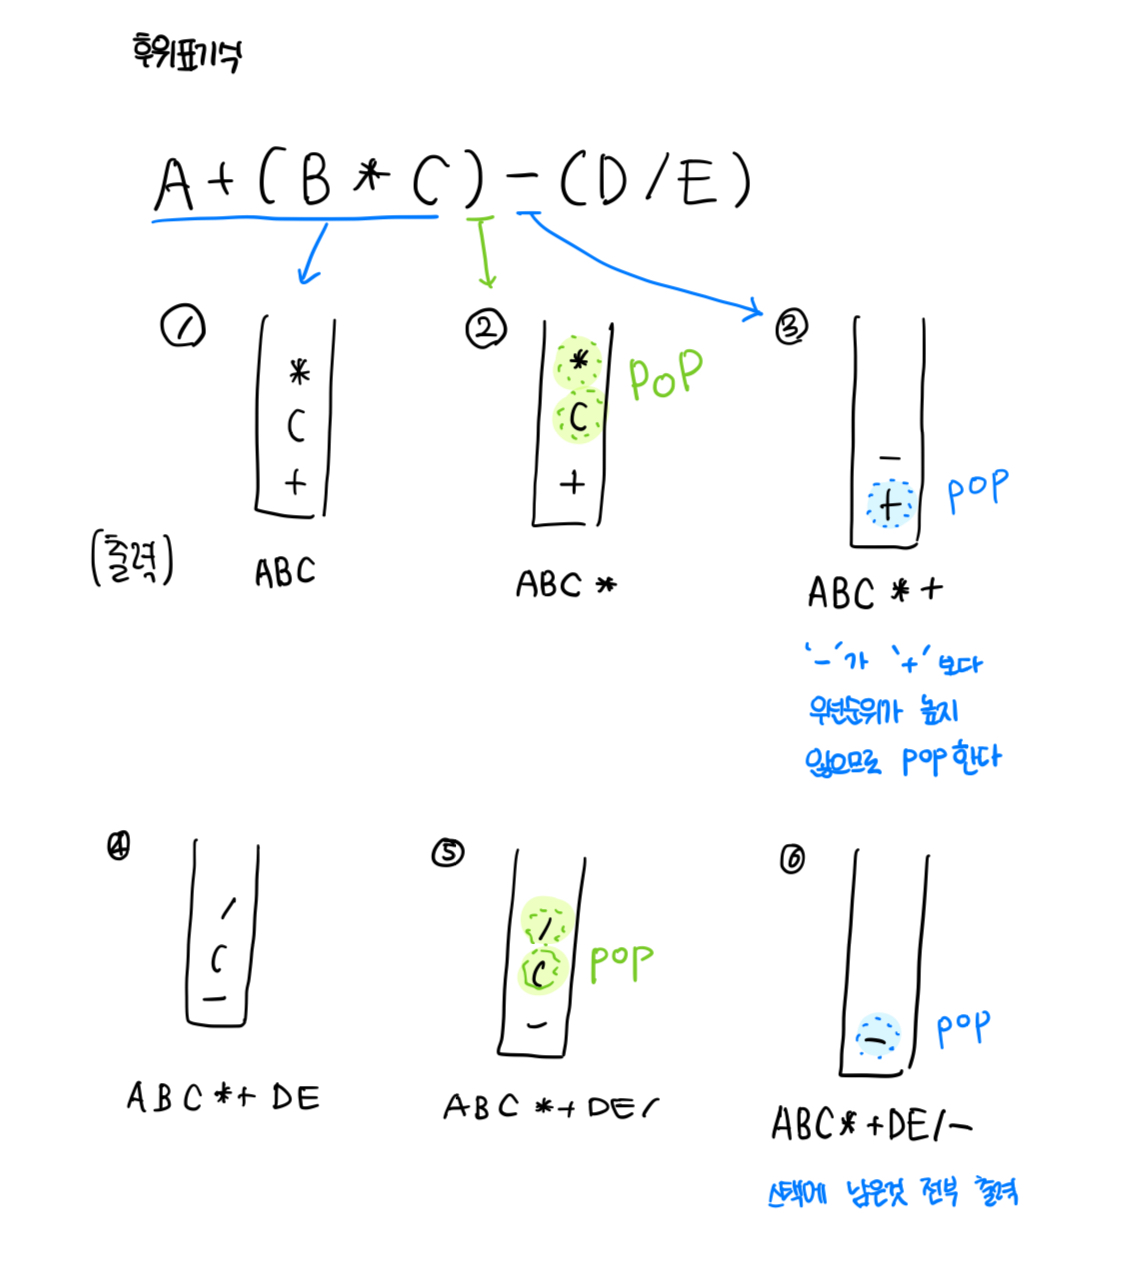 후위표기식
A + ( B * C ) - ( D / E )
①
*
C
+
(출력)
ABC
②
*
C
+
POP
ABC *
③
-
+
POP
ABC * +
'-'가 '+'보다
우선순위가 높지
않으므로 pop한다
④
/
C
-
ABC *+ DE
⑤
/
C
-
POP
ABC *+ DE/
⑥
-
POP
ABC* +DE/-
스택에 남은것 전부 출력